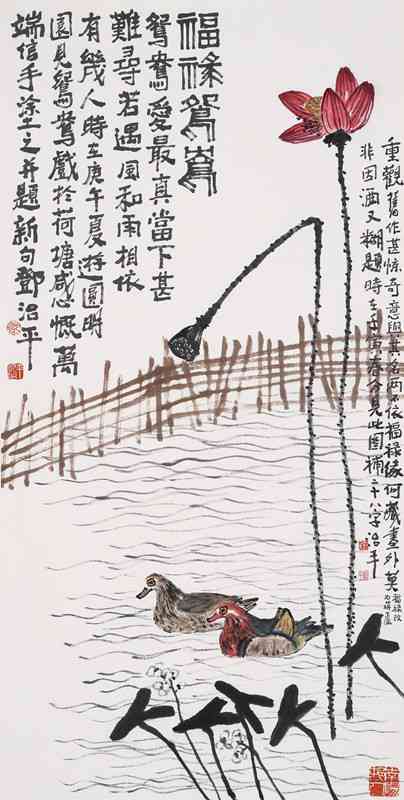 福祿鴛鴦
鴛鴦愛最真當下甚
難尋若遇風和雨相依
有幾人時在庚午夏遊圓明
園見鴛鴦戲於荷塘感慨萬
端信手塗之并題新句鄧治平
重觀舊作甚惊奇意與其名兩不依福祿緣何藏畫外莫
非因酒又糊題時在壬寅春分見此图補二十八字治平